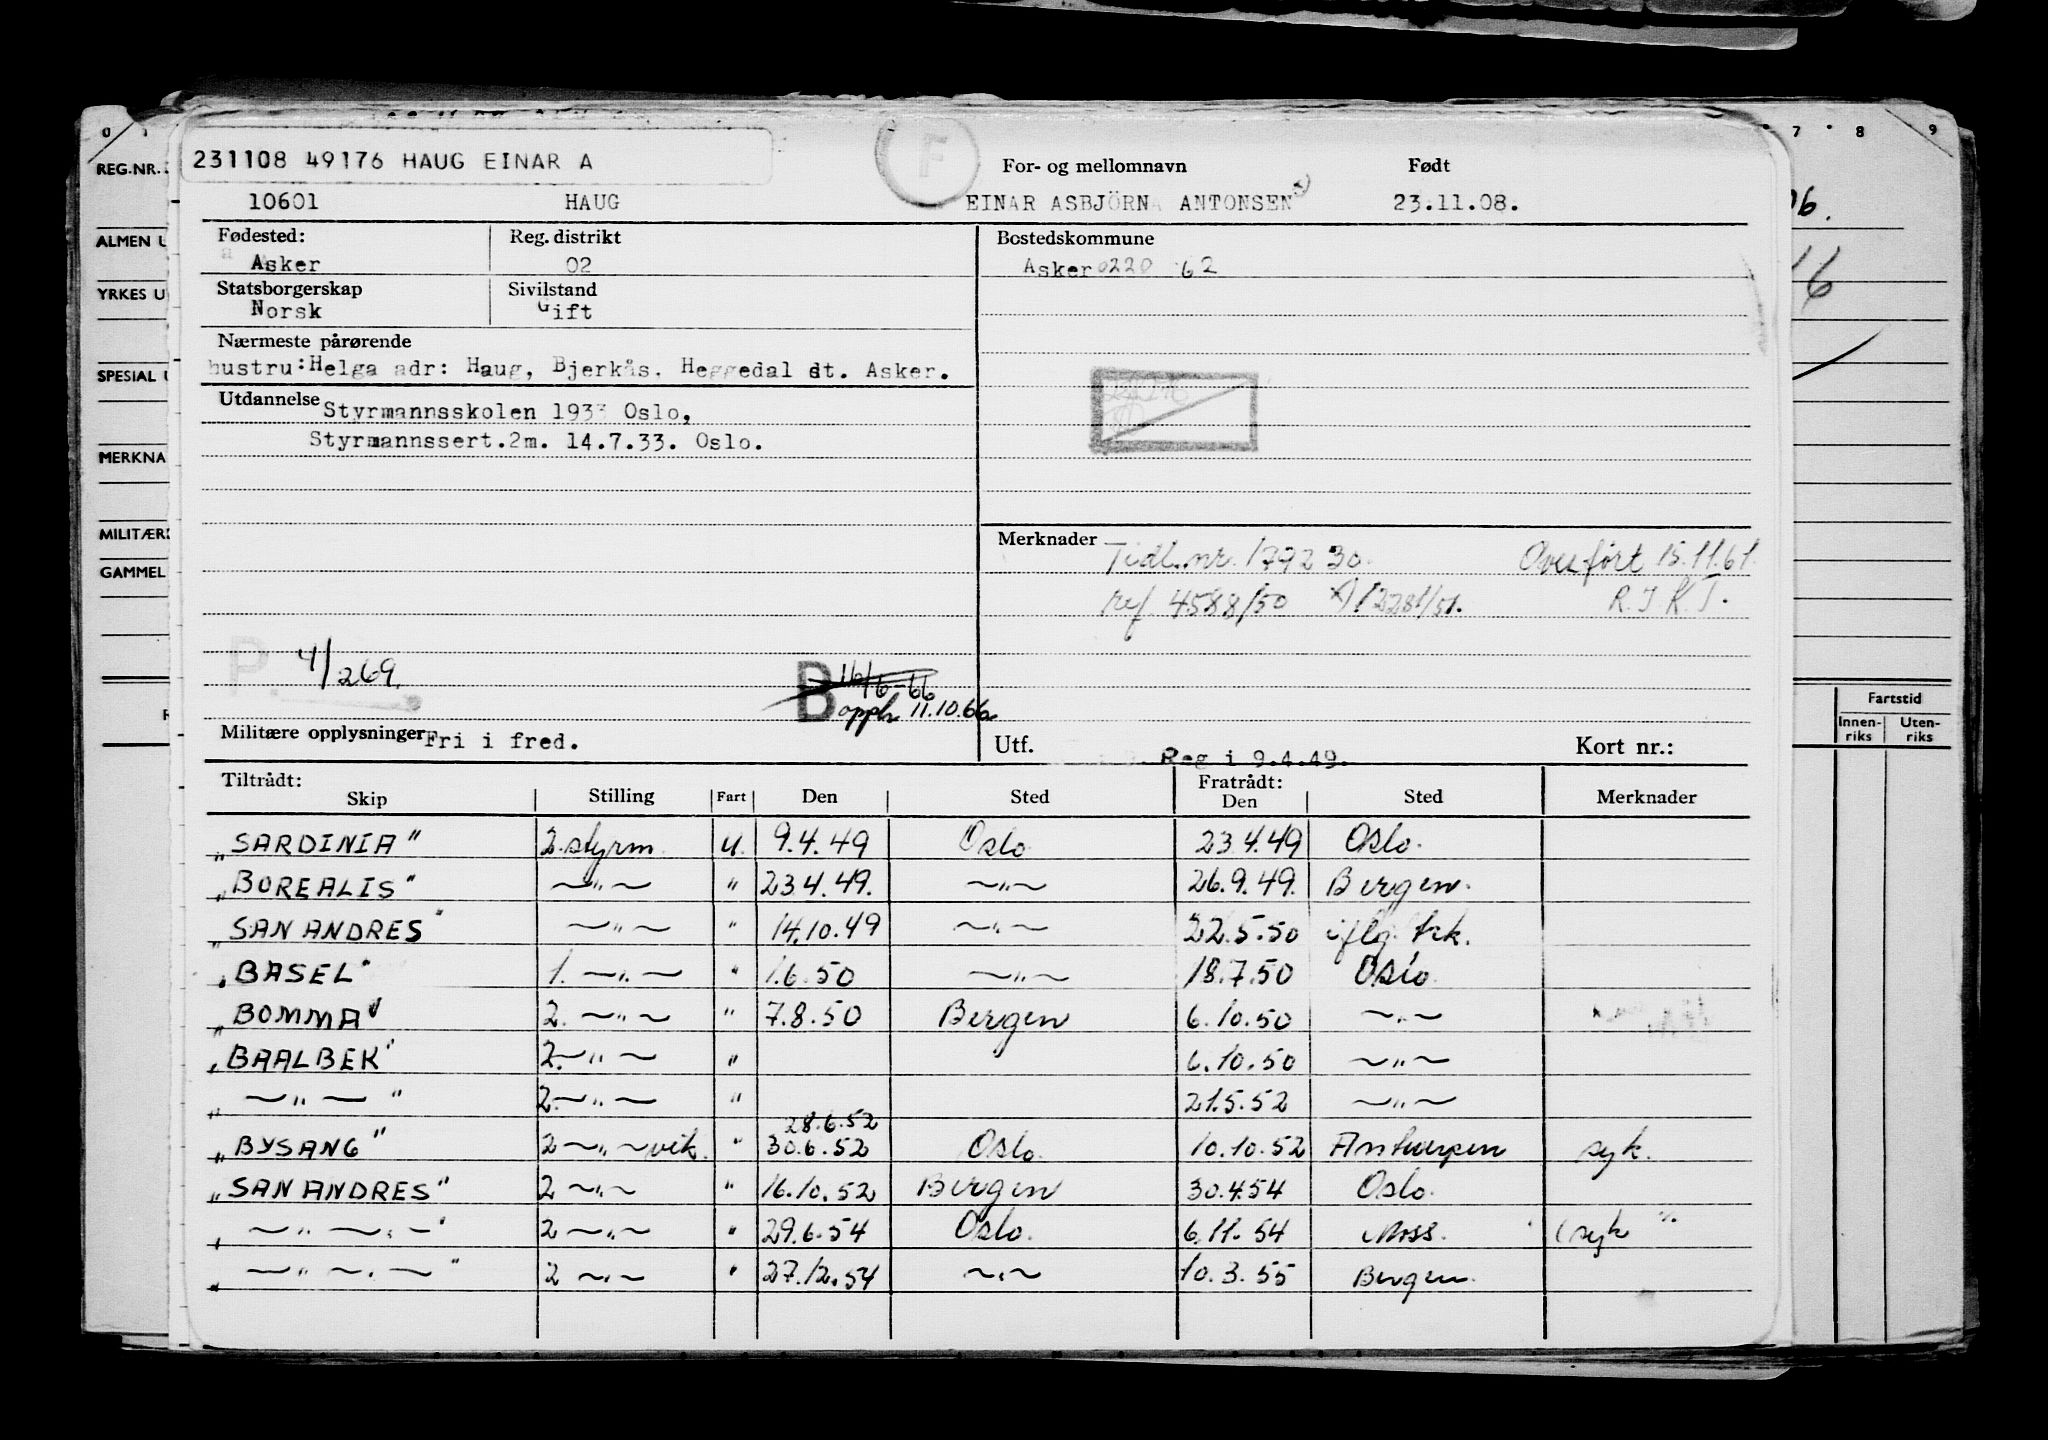 231108 49176 HAUG EINAR A
F
For- og mellomnavn Født
10601 HAUG EINAR ASBJÖRN ANTONSEN x) 23.11.08.
Fødested: Reg. distrikt Bostedskommune
Asker 02 Asker 0220 62
Statsborgerskap Sivilstand
Norsk Gift
Nærmeste pårørende
hustru: Helga adr: Haug, Bjerkås. Heggedal st. Asker.
Utdannelse Styrmannsskolen 1933 Oslo,
Styrmannssert.2m. 14.7.33. Oslo.
Merknader Tidl. nr. 179230. Overført 15.11.61.
ref. 4588/50 x) 12281/51. R.T.K.T.
P. 4/269.
B 16/6-66
opph 11.10.66
Militære opplysninger Fri i fred. Utf. Reg i 9.4.49. Kort nr.:
Tiltrådt: Fratrådt:
Skip Stilling Fart Den Sted Den Sted Merknader
„SARDINIA" 2. styrm. U. 9.4.49 Oslo 23.4.49 Oslo.
„BOREALIS" ~"~ " 23.4.49. ~"~ 26.9.49. Bergen.
„SAN ANDRES" ~"~ " 14.10.49 ~"~ 22.5.50 iflg. trk.
„BASEL" 1. ~"~ " 1.6.50 ~"~ 18.7.50 Oslo.
„BOMMA" 2. ~"~ " 7.8.50 Bergen 6.10.50 ~"~
„BAALBEK" 2. ~"~ " 6.10.50 ~"~
„ ~"~ " 2. ~"~ " 21.5.52 ~"~
28.6.52
„BYSANG" 2 ~"~ vik. " 30.6.52 Oslo. 10.10.52 Antwerpen syk.
„SAN ANDRES" 2 ~"~ " 16.10.52 Bergen 30.4.54 Oslo.
„ ~"~"~ " 2 ~"~ " 29.6.54 Oslo. 6.11.54 Moss. (syk
„ ~"~"~ " 2 ~"~ " 27.12.54 ~"~ 10.3.55 Bergen.
0
REG.NR.
ALMEN U
YRKES U
SPESIAL U
MERKNA
MILITÆR
GAMMEL
R
7 8 9
06.
16
Fartstid
Innen- Uten-
riks riks